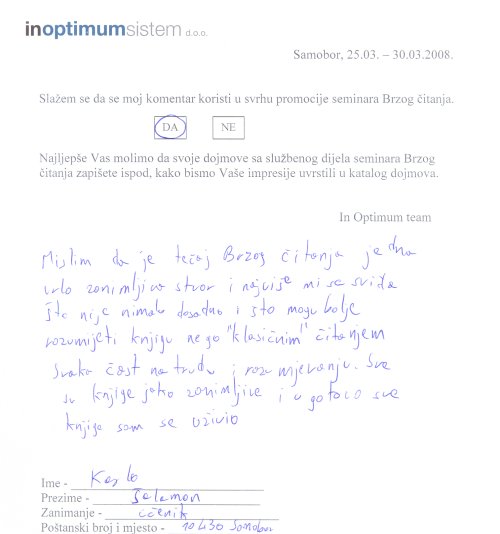 inoptimumsistem d.o.o.
Samobor, 25.03. – 30.03.2008.
Slažem se da se moj komentar koristi u svrhu promocije seminara Brzog čitanja.
DA NE
Najljepše Vas molimo da svoje dojmove sa službenog dijela seminara Brzog
čitanja zapišete ispod, kako bismo Vaše impresije uvrstili u katalog dojmova.
In Optimum team
Mislim da je tečaj Brzog čitanja jedna
vrlo zanimljiva stvar i najviše mi se sviđa
što nije nimalo dosadno i što mogu bolje
razumijeti knjigu nego "klasičnim" čitanjem
Svaka čast na trudu i razumjevanju. Sve
su knjige jako zanimljive i u gotovo sve
knjige sam se uživio
Ime - Karlo
Prezime - Šalamon
Zanimanje - učenik
Poštanski broj i mjesto - 10430 Samobor